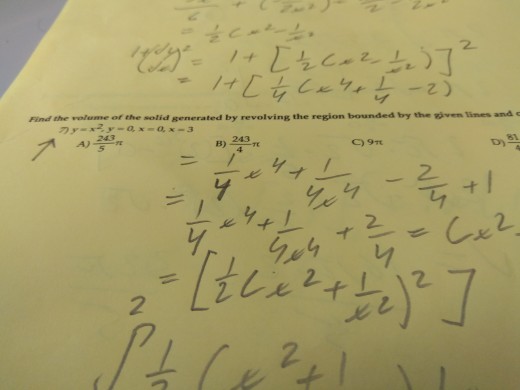 = 1/2 (x² - 1/x²)
1 + (dy/dx)² = 1 + [1/2 (x² - 1/x²)]²
= 1 + [1/4 (x⁴ + 1/4 - 2)
Find the volume of the solid generated by revolving the region bounded by the given lines and
7) y = x², y = 0, x = 0, x = 3
A) 243/5 π B) 243/4 π C) 9π D) 81
= 1/4 x⁴ + 1/4x⁴ - 2/4 + 1
= 1/4 x⁴ + 1/4x⁴ + 2/4 = (x²
= [1/2 (x² + 1/x²)² ]
2
∫ 1/2 (x² + 1